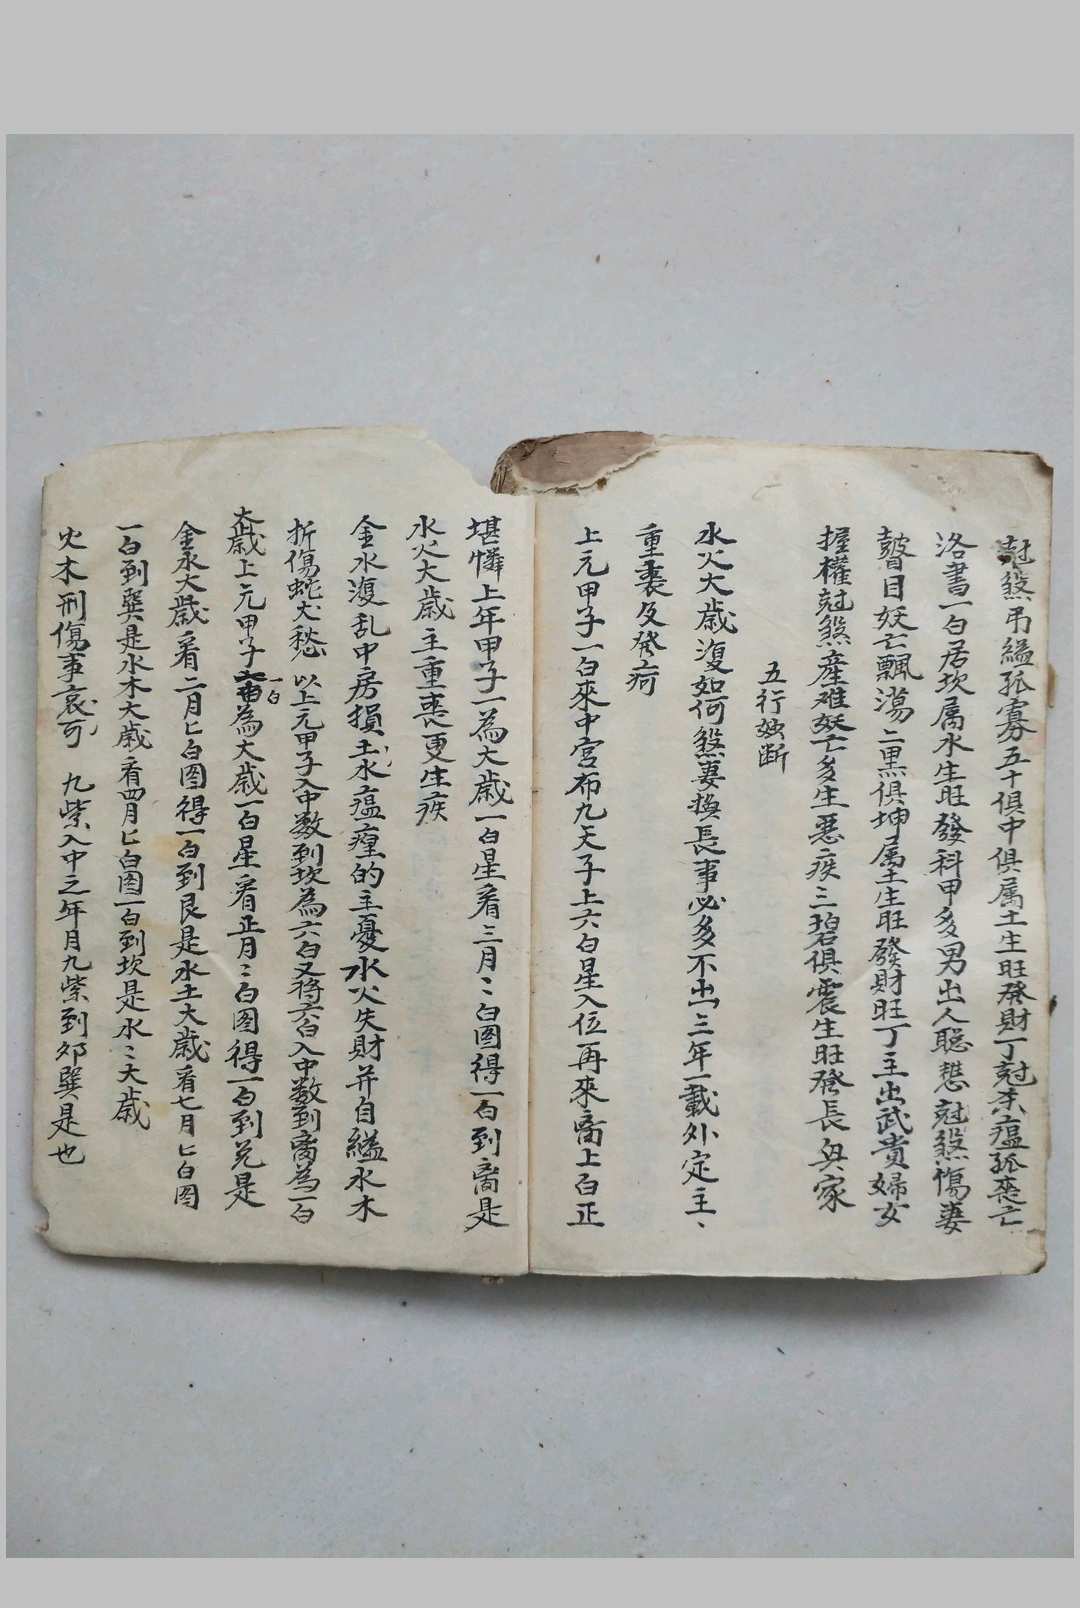 尅煞吊縊孤寡五十俱中俱属土生旺発財丁尅杀瘟孤丧亡
洛書一白居坎属水生旺發科甲多男出人聪慧尅煞傷妻
瞽目妖亡飄蕩二黑俱坤属土生旺發財旺丁主出武貴婦女
握權尅煞產难妖亡多生惡疾三碧俱震生旺発長與家
五行断
水火大歳復如何煞妻換長事必多不出三年一載外定主丶
重喪及発疴
上元甲子一白來中宮布九天子上六白星入位再來离上白正
堪憐上年甲子一為大歳一白星看三月三白图得一白到离是
水火大歳主重喪更生疾
金水復乱中房損土水瘟瘽的主憂水火失財并自縊水木
折傷蛇犬愁 以上元甲子入中数到坎為六白又将六白入中数到离為一白
大歳上元甲子一白為大歳一白星看正月三白图得一白到兑是
金水大歳看二月匕白图得一白到艮是水土大歳看七月匕白图
一白到巽是水木大歳看四月匕白图一白到坎是水〻大歳
火木刑傷事哀可 九紫入中之年月九紫到卯巽是也